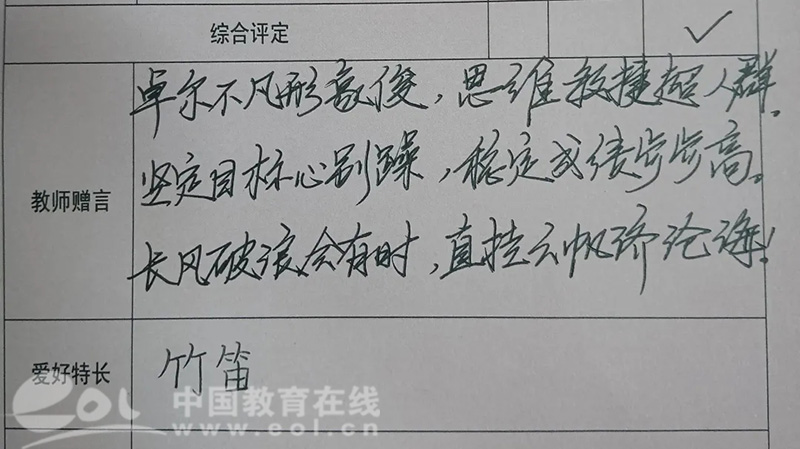 综合评定 ✓
教师赠言
卓尔不凡形象俊，思维敏捷超人群。
坚定目标心别躁，稳定成绩步步高。
长风破浪会有时，直挂云帆济沧海！
爱好特长 竹笛
eol 中国教育在线
www.eol.cn